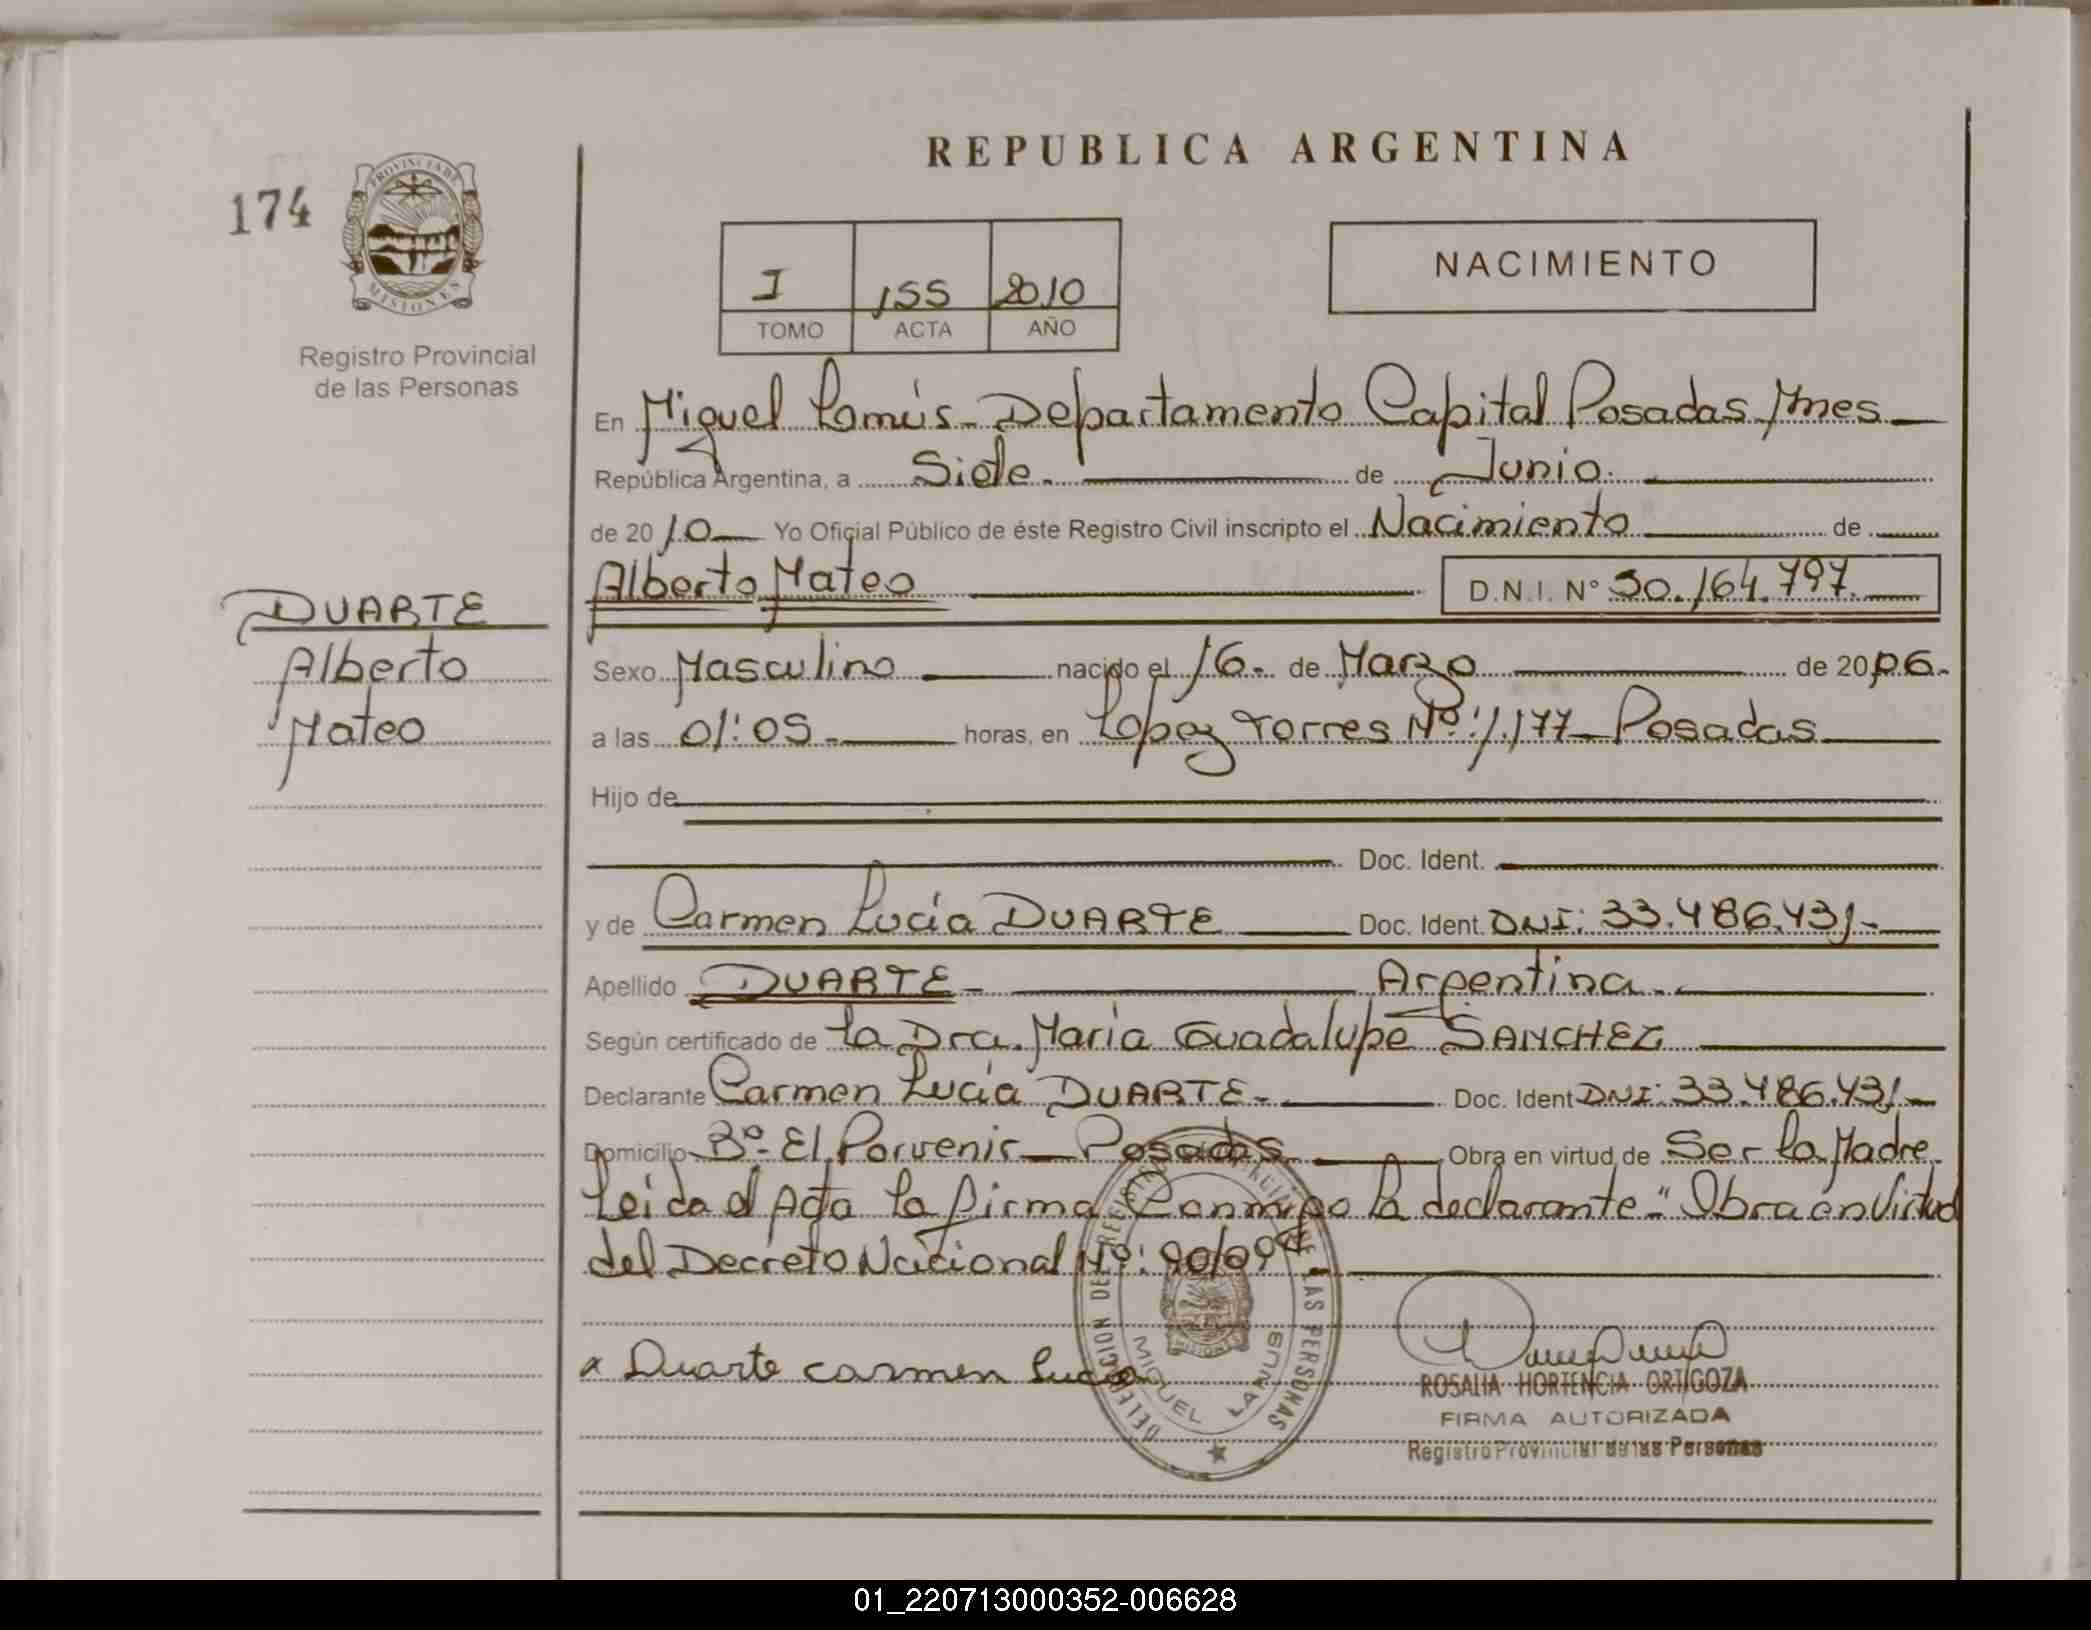 REPUBLICA ARGENTINA
174
PROVINCIA DE MISIONES
Registro Provincial
de las Personas
I 155 2010
TOMO ACTA AÑO
NACIMIENTO
En Miguel Lanús - Departamento Capital Posadas Mnes
República Argentina, a Siete. de Junio.
de 2010 Yo Oficial Público de éste Registro Civil inscripto el Nacimiento de
Alberto Mateo D.N.I. N° 50.164.797.
DUARTE
Alberto
Mateo
Sexo Masculino nacido el 16. de Marzo de 2006.
a las 01:05 horas, en Lopez Torres Nº: 1.177 - Posadas
Hijo de
Doc. Ident.
y de Carmen Lucía DUARTE Doc. Ident. DNI: 33.486.431.-
Apellido DUARTE - Argentina.
Según certificado de La Dra. María Guadalupe SANCHEZ
Declarante Carmen Lucía DUARTE - Doc. Ident DNI: 33.486.431.-
Domicilio Bº - El Porvenir - Posadas Obra en virtud de Ser la Madre
Leida el Acta la firma Conmigo la declarante." Obra en Virtud
del Decreto Nacional Nº: 90/09"
x Duarte carmen Lucia
DELEGACION DEL REGISTRO PROVINCIAL DE LAS PERSONAS
MISIONES
MIGUEL LANUS
ROSALIA HORTENCIA ORTIGOZA
FIRMA AUTORIZADA
Registro Provincial de las Personas
01_220713000352-006628